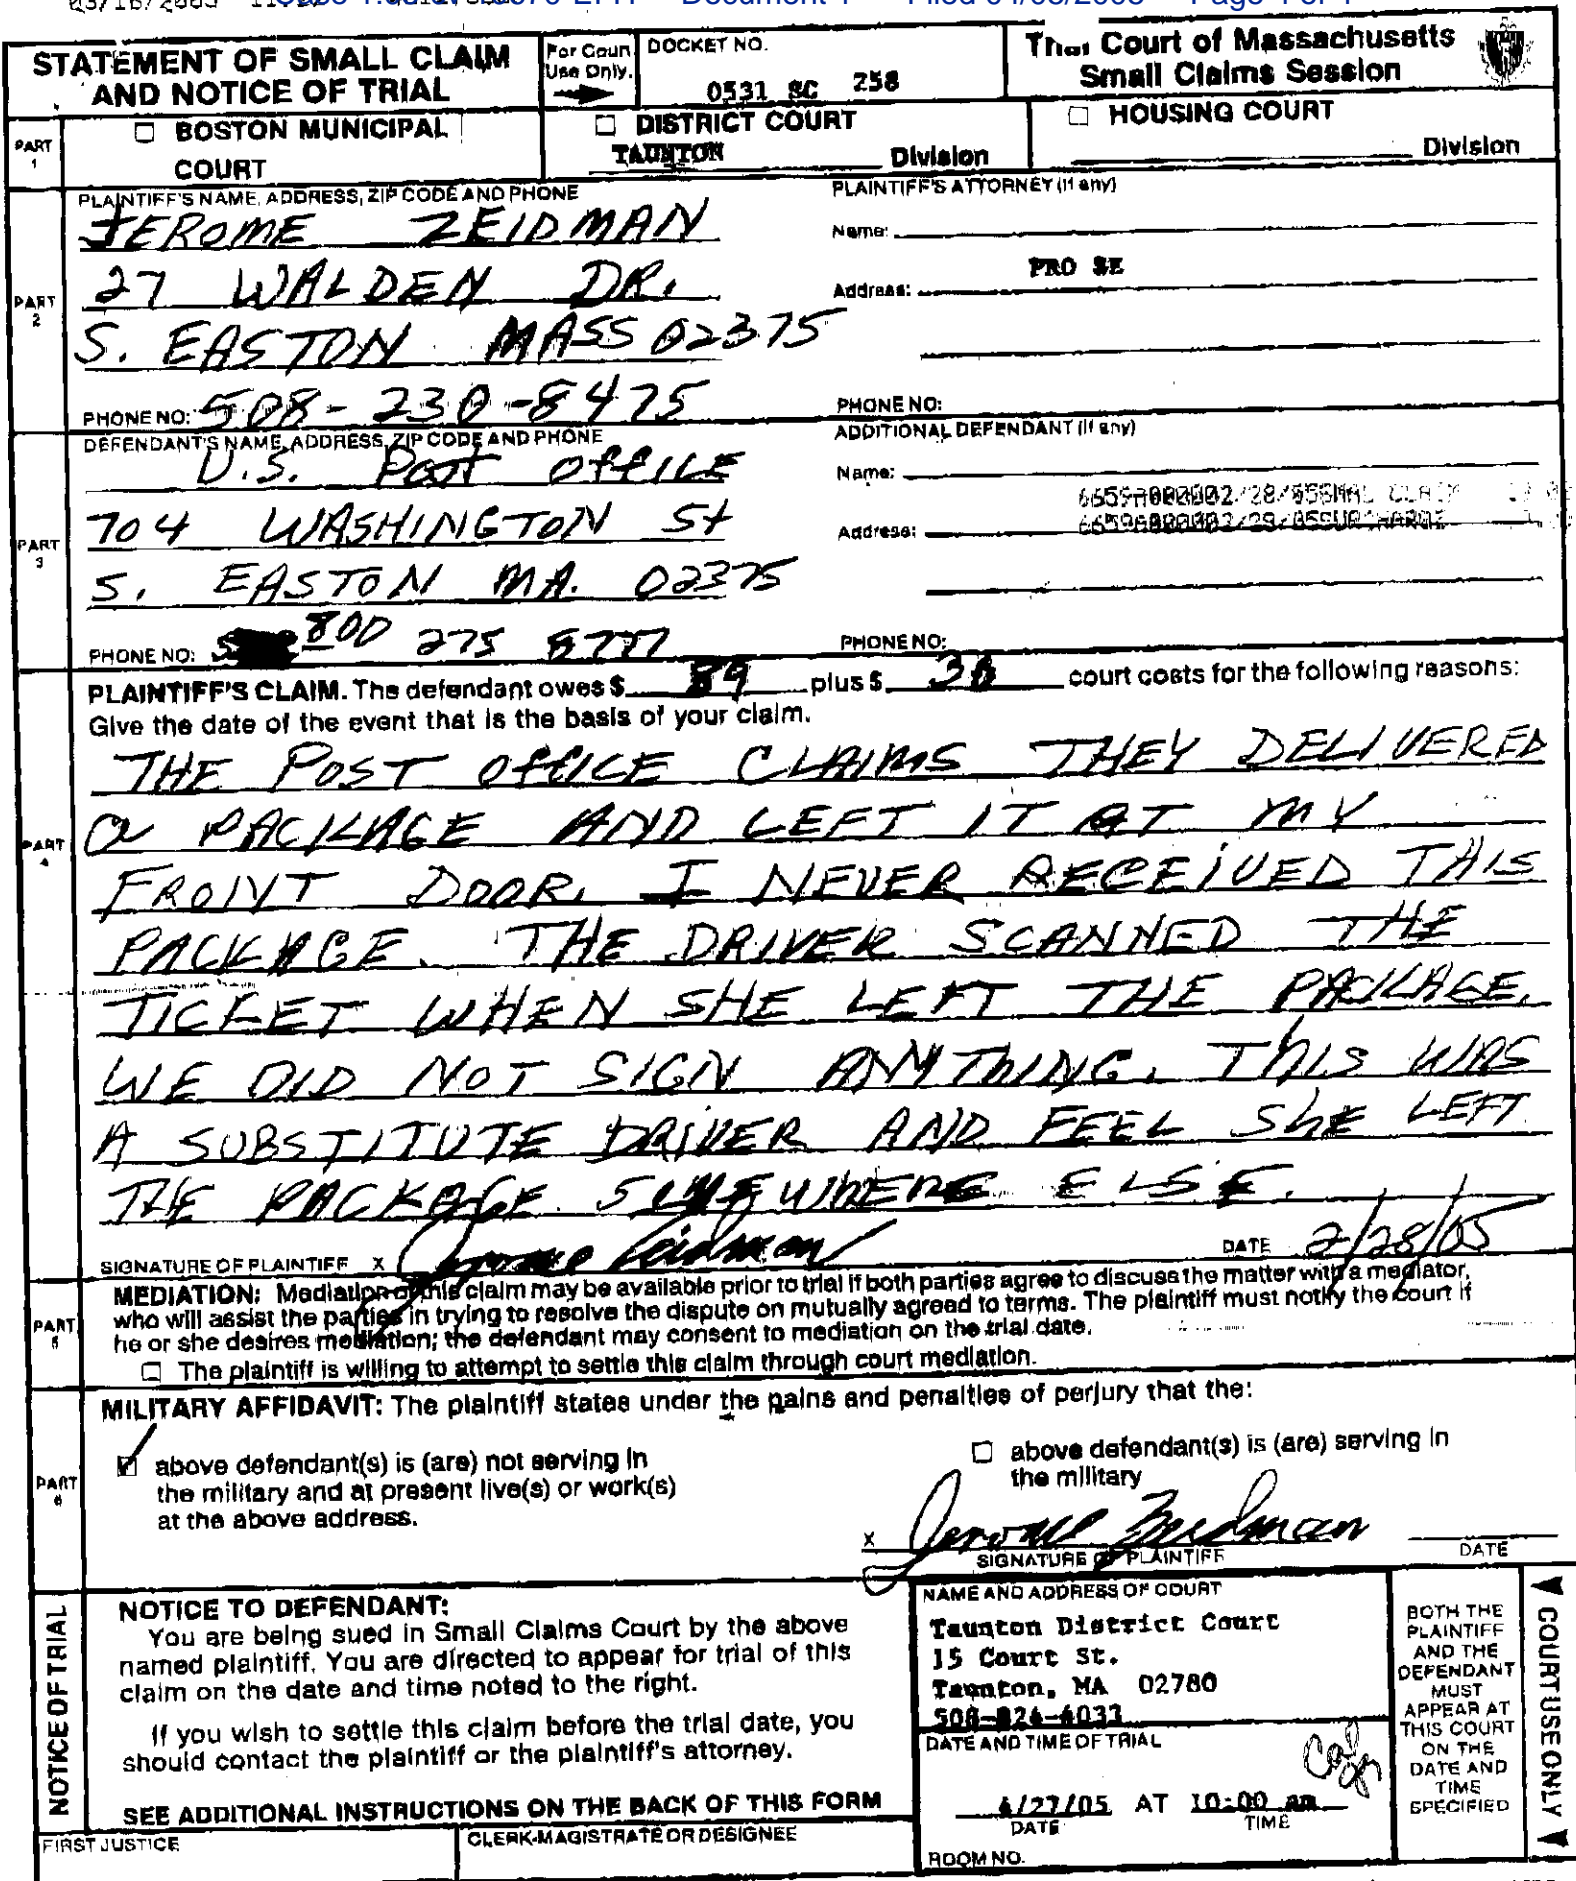 03/16/2005
Document 1 Page 1 of 1
STATEMENT OF SMALL CLAIM
AND NOTICE OF TRIAL
For Court
Use Only.
DOCKET NO.
0531 SC 258
Court of Massachusetts
Small Claims Session
PART
1
☐ BOSTON MUNICIPAL
COURT
☐ DISTRICT COURT
TAUNTON Division
☐ HOUSING COURT
Division
PART
2
PLAINTIFF'S NAME, ADDRESS, ZIP CODE AND PHONE
JEROME ZEIDMAN
27 WALDEN DR.
S. EASTON MASS 02375
PHONE NO: 508-230-8475
PLAINTIFF'S ATTORNEY (if any)
Name:
PRO SE
Address:
PHONE NO:
PART
3
DEFENDANT'S NAME, ADDRESS, ZIP CODE AND PHONE
U.S. Post OFFICE
704 WASHINGTON St
S. EASTON MA. 02375
PHONE NO: 800 275 8777
ADDITIONAL DEFENDANT (if any)
Name:
Address:
PHONE NO:
PART
4
PLAINTIFF'S CLAIM. The defendant owes $ 89 plus $ court costs for the following reasons:
Give the date of the event that is the basis of your claim.
THE POST OFFICE CLAIMS THEY DELIVERED
a PACKAGE AND LEFT IT AT MY
FRONT DOOR. I NEVER RECEIVED THIS
PACKAGE. THE DRIVER SCANNED THE
TICKET WHEN SHE LEFT THE PACKAGE.
WE DID NOT SIGN ANYTHING. THIS WAS
A SUBSTITUTE DRIVER AND FEEL SHE LEFT
THE PACKAGE SOMEWHERE ELSE.
SIGNATURE OF PLAINTIFF X Jerome Zeidman DATE 2/28/05
PART
5
MEDIATION: Mediation of this claim may be available prior to trial if both parties agree to discuss the matter with a mediator,
who will assist the parties in trying to resolve the dispute on mutually agreed to terms. The plaintiff must notify the court if
he or she desires mediation; the defendant may consent to mediation on the trial date.
☐ The plaintiff is willing to attempt to settle this claim through court mediation.
PART
6
MILITARY AFFIDAVIT: The plaintiff states under the pains and penalties of perjury that the:
☑ above defendant(s) is (are) not serving in
the military and at present live(s) or work(s)
at the above address.
☐ above defendant(s) is (are) serving in
the military
x Jerome Zeidman
SIGNATURE OF PLAINTIFF
DATE
NOTICE OF TRIAL
NOTICE TO DEFENDANT:
You are being sued in Small Claims Court by the above
named plaintiff. You are directed to appear for trial of this
claim on the date and time noted to the right.
If you wish to settle this claim before the trial date, you
should contact the plaintiff or the plaintiff's attorney.
SEE ADDITIONAL INSTRUCTIONS ON THE BACK OF THIS FORM
NAME AND ADDRESS OF COURT
Taunton District Court
15 Court St.
Taunton, MA 02780
508-824-4033
DATE AND TIME OF TRIAL
4/27/05 AT 10:00 am
DATE
TIME
ROOM NO.
BOTH THE
PLAINTIFF
AND THE
DEFENDANT
MUST
APPEAR AT
THIS COURT
ON THE
DATE AND
TIME
SPECIFIED
COURT USE ONLY
FIRST JUSTICE
CLERK-MAGISTRATE OR DESIGNEE